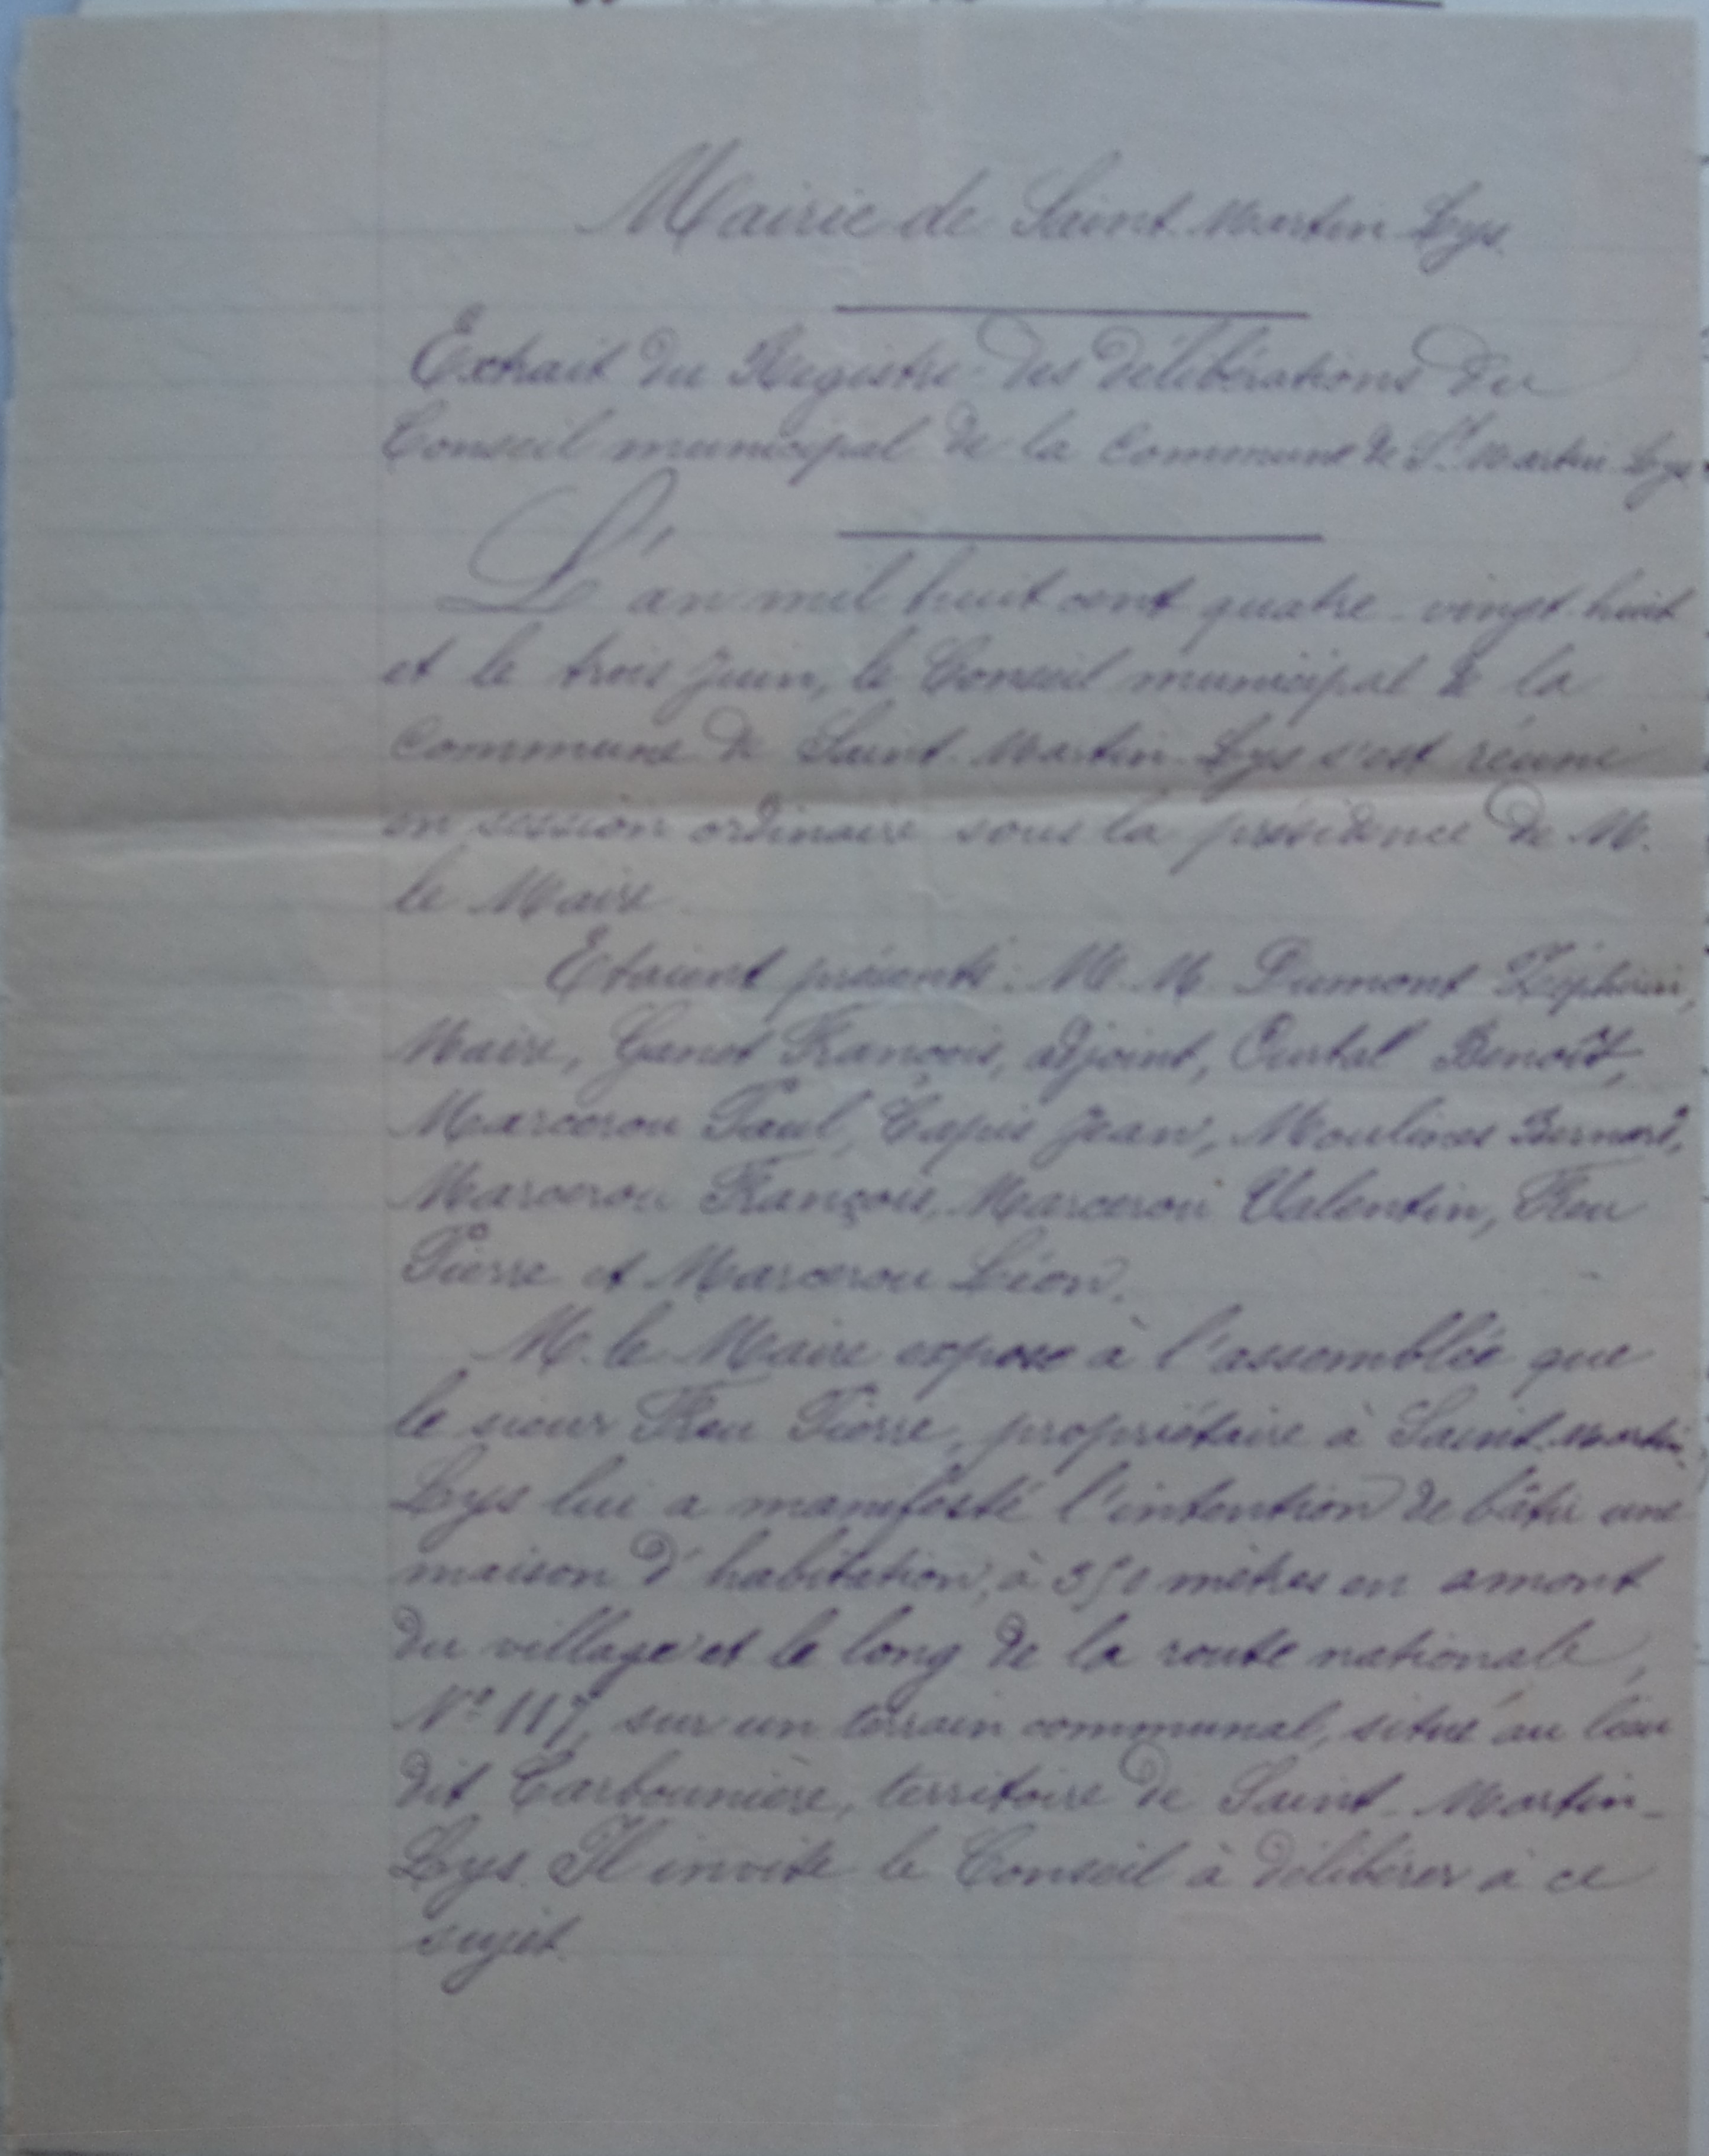 Mairie de Saint Martin Lys
Extrait du Registre des délibérations du
Conseil municipal de la Commune de St Martin Lys
L'an mil huit cent quatre-vingt huit
et le trois Juin, le Conseil municipal de la
Commune de Saint-Martin-Lys s'est réuni
en session ordinaire sous la présidence de M.
le Maire
Etaient présents : M. M. Dumont Zéphirin,
Maire, François, adjoint, Courtal Benoît,
Marcerou Paul, Capis Jean, Moulines Bernard,
Marcerou François, Marcerou Valentin, Feu
Pierre et Marcerou Léon.
M. le Maire expose à l'assemblée que
le sieur Feu Pierre, propriétaire à Saint-Martin
Lys lui a manifesté l'intention de bâtir une
maison d'habitation, à 350 mètres en amont
du village et le long de la route nationale,
N° 117, sur un terrain communal, situé au lieu
dit Carbounière, territoire de Saint-Martin-
Lys. Il invite le Conseil à délibérer à ce
sujet